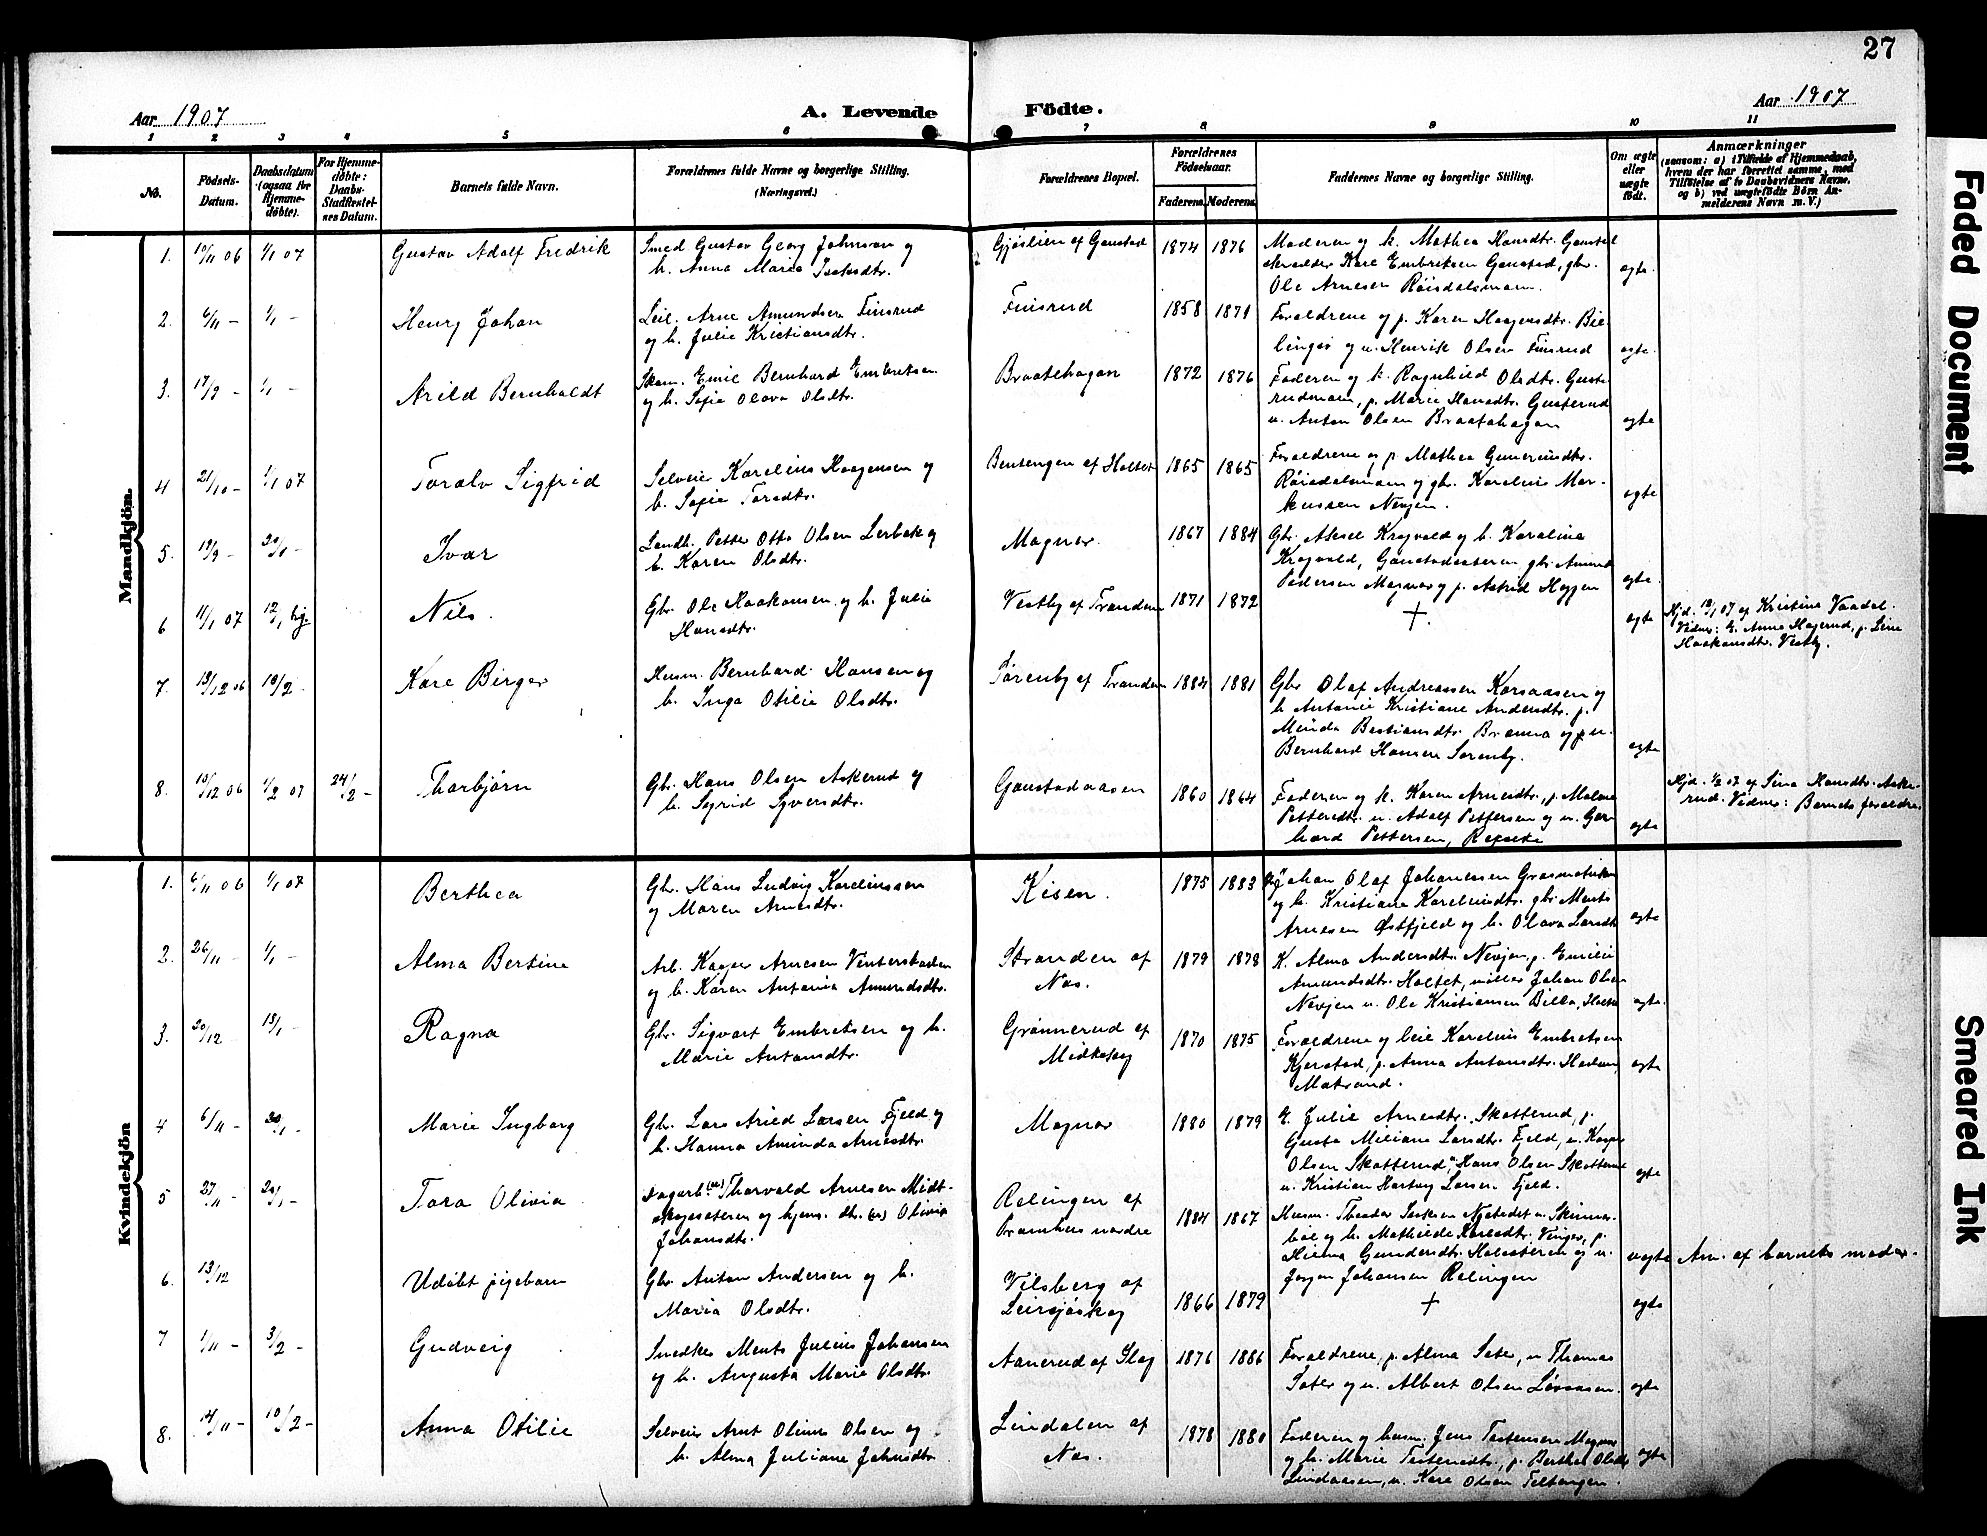 27
Aar 1907
A. Levende Födte.
Aar 1907
1 2 3 4 5 6 7 8 9 10 11
No.
Födsels-
Datum.
Daabsdatum
(ogsaa for
Hjemme-
döbte).
For Hjemme-
döbte:
Daabs-
Stadfæstel-
ses Datum.
Barnets fulde Navn.
Forældrenes fulde Navne og borgerlige Stilling.
(Næringsvei.)
Forældrenes Bopæl.
Forældrenes
Födselsaar.
Faderens. Moderens.
Faddernes Navne og borgerlige Stilling.
Om ægte
eller
uægte
födt.
Anmærkninger
(saasom: a) i Tilfælde af Hjemmedaab,
hvem der har forrettet samme, med
Tilföielse af to Daabsvidners Navne,
og b) ved uægtefödte Börn An-
melderens Navn m. V.)
Mandkjön.
1. 10/11 06 1/1 07 Gustav Adolf Fredrik
Smed Gustav Georg Johnson og
h. Anna Marie
Gjøslien af Gaustad 1874 1876
Moderen og k. Mathea Hansdtr. Gaustad
Kare Embriksen Gaustad, gbr.
Ole Arnesen Røisdalsmoen.
egte.
2. 6/11 – 1/1 – Henry Johan
Leil. Arne Amundsen Finsrud
og h. Julie Kristiansdtr.
Finsrud 1858 1871
Forældrene og p. Karen Haagensdtr. Bil-
lingsø og u. Henrik Olsen Finsrud
egte.
3. 17/9 – 1/1 – Arild Bernhaldt
Skom. Emil Bernhard Embretsen
og h. Sofie Olava Olsdtr.
Braatehagan 1872 1876
Faderen og k. Ragnhild Olsdtr. Guste-
rudmoen, p. Marie Hansdtr. Gusterud
u. Anton Olsen Braatehagan
egte
4 21/10 – 1/1 07 Toralv Sigfrid
Selveier Karelius Haagensen og
h. Sofie Toredtr.
Bensengen af Holtet 1865 1865
Forældrene og p. Mathea Guneriusdtr.
Røisdalsmoen og gbr. Karelius Mar-
kussen Nevjen.
egte
5. 19/9 – 20/1 – Ivar
Landh. Petter Otto Olsen Lerbak og
h. Karen Olsdtr.
Magnor. 1867 1884
Gbr. Aksel Krogvold og h. Karolina
Krogvold, Gaustadsæteren gbr. Amund
Pedersen Magnor og p. Astrid Heyjen
egte.
6 11/1 07 12/1 hj. Nils.
Gbr. Ole Haakonsen og h. Julie
Hansdtr.
Vestby af Trandem 1871 1872
+.
egte
Hjd. 12/1 07 af Kristine Vaadal.
Vidner: E. Anne Hagerud, p. Line
Haakonsdtr. Vestby.
7. 19/12 06 10/2 – Kåre Birger
Husm. Bernhard Hansen og
h. Inga Otilie Olsdtr.
Sørenby af Trandem 1884 1881
Gbr Olaf Andreassen Korsaasen og
h Antonie Kristiane Andersdtr. p.
Minda Bastiansdtr. Bramna og u.
Bernhard Hansen Sørenby.
egte
8. 13/12 06 1/2 07 24/2 – Thorbjørn
Gbr. Hans Olsen Askerud og
h. Syrid Syversdtr.
Gaustadaasen 1860 1864
Faderen og k. Karen Arnesdtr. p. Malene
Pettersdtr. u. Adolf Pettersen og u. Ger-
hard Pettersen,
egte
Hjd. 1/2 07 af Sina Hansdtr. Aske-
rud. Vidner: Barnets forældre
Kvindekjön
1. 6/11 06 1/1 07 Berthea
Gbr. Hans Ludvig Kareliussen
og Maren Arnesdtr.
Kisen. 1875 1883
Gbr Johan Olaf Johanessen Grasmobakken
og h. Kristiane Kareliusdtr. gbr. Ments
Arnesen Østfjeld og h. Olava Larsdtr
egte
2. 26/11 – 1/1 – Alma Bertine
Arb. Kasper Arnesen Vinterstaden
og h. Karen Antonia Amundsdtr.
Stranden af
Nas. 1879 1878
K. Alma Andersdtr. Nevjen, p. Emilie
Amundsdtr. Holtet, møller Johan Olsen
Nevjen u. Ole Kristiansen Billa, Holtet
egte.
3. 20/12 13/1 – Ragna
Gbr. Sigvart Embretsen og h.
Marie Antonsdtr.
Grønnerud af
Midtskog 1870 1875
Forældrene og leil Karelius Embretsen
Kjerstad, p. Anna Antonsdtr.
Matrand.
egte
4 6/11 – 20/1 – Marie Ingborg
Gbr. Lars Arild Larsen Fjeld og
h. Hanna Aminda Arnesdtr.
Magnor 1880 1879
E. Julie Arnesdtr. Skotterud, p.
Gusta Miliane Larsdtr. Fjeld, u. Kasper
Olsen Skotterud, Hans Olsen Skotterud
u. Kristian Hartvig Larsen Fjeld.
egte
5 27/11 – 20/1 – Tora Olivia
Dagarb. (u) Thorvald Arnesen Midt-
skogsæteren og hjem. dtr. (u) Olivia
Johansdtr.
Rælingen af
Bramhus nordre 1884 1867
Husm. Theodor Isaksen Nystedet u. Skinnar-
bøl og h. Mathilde Karlsdtr. Vinger, p.
Hilma Gundersdtr. Holsæteren og u.
Jørgen Johansen Rælingen
uegte An. af barnets moder.
6. 13/12 Udøbt pigebarn
Gbr Anton Andersen og h.
Maria Olsdtr.
Vilsberg af
Leirsjøskog 1866 1879
+
egte
7 1/11 – 3/2 – Gudveig
Snedker Ments Julius Johansen
og h. Augusta Marie Olsdtr.
Aanerud af Slog 1876 1886
Forældrene, p. Alma Sæter, u Thomas
Sæter og u. Albert Olsen Løvaasen.
egte
8. 14/11 – 10/2 – Anna Otilie
Selveier Arnt Olinus Olsen og
h. Alma Juliane Johnsdtr
Lindalen af
Nas. 1878 1880
Faderen og husm. Jens Torstensen Magnor
og h. Marie Torstensdtr., p. Berthe Olsdtr.
Lindaasen, u. Kåre Olsen Teltangen.
egte
Faded Document
Smeared Ink